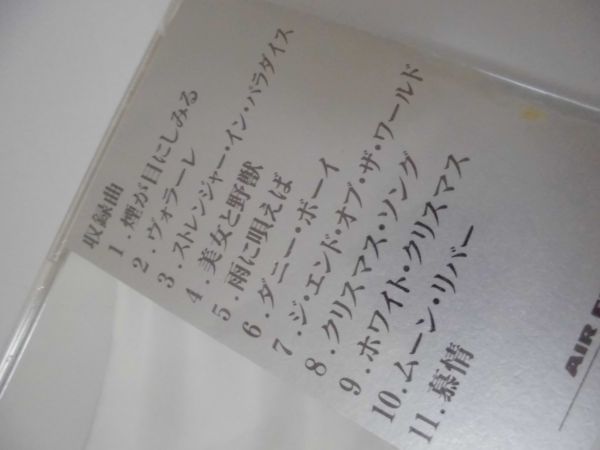 収録曲
1.煙が目にしみる
2.ヴォラーレ
3.ストレンジャー・イン・パラダイス
4.美女と野獣
5.雨に唄えば
6.ダニー・ボーイ
7.ジ・エンド・オブ・ザ・ワールド
8.クリスマス・ソング
9.ホワイト・クリスマス
10.ムーン・リバー
11.慕情
AIR